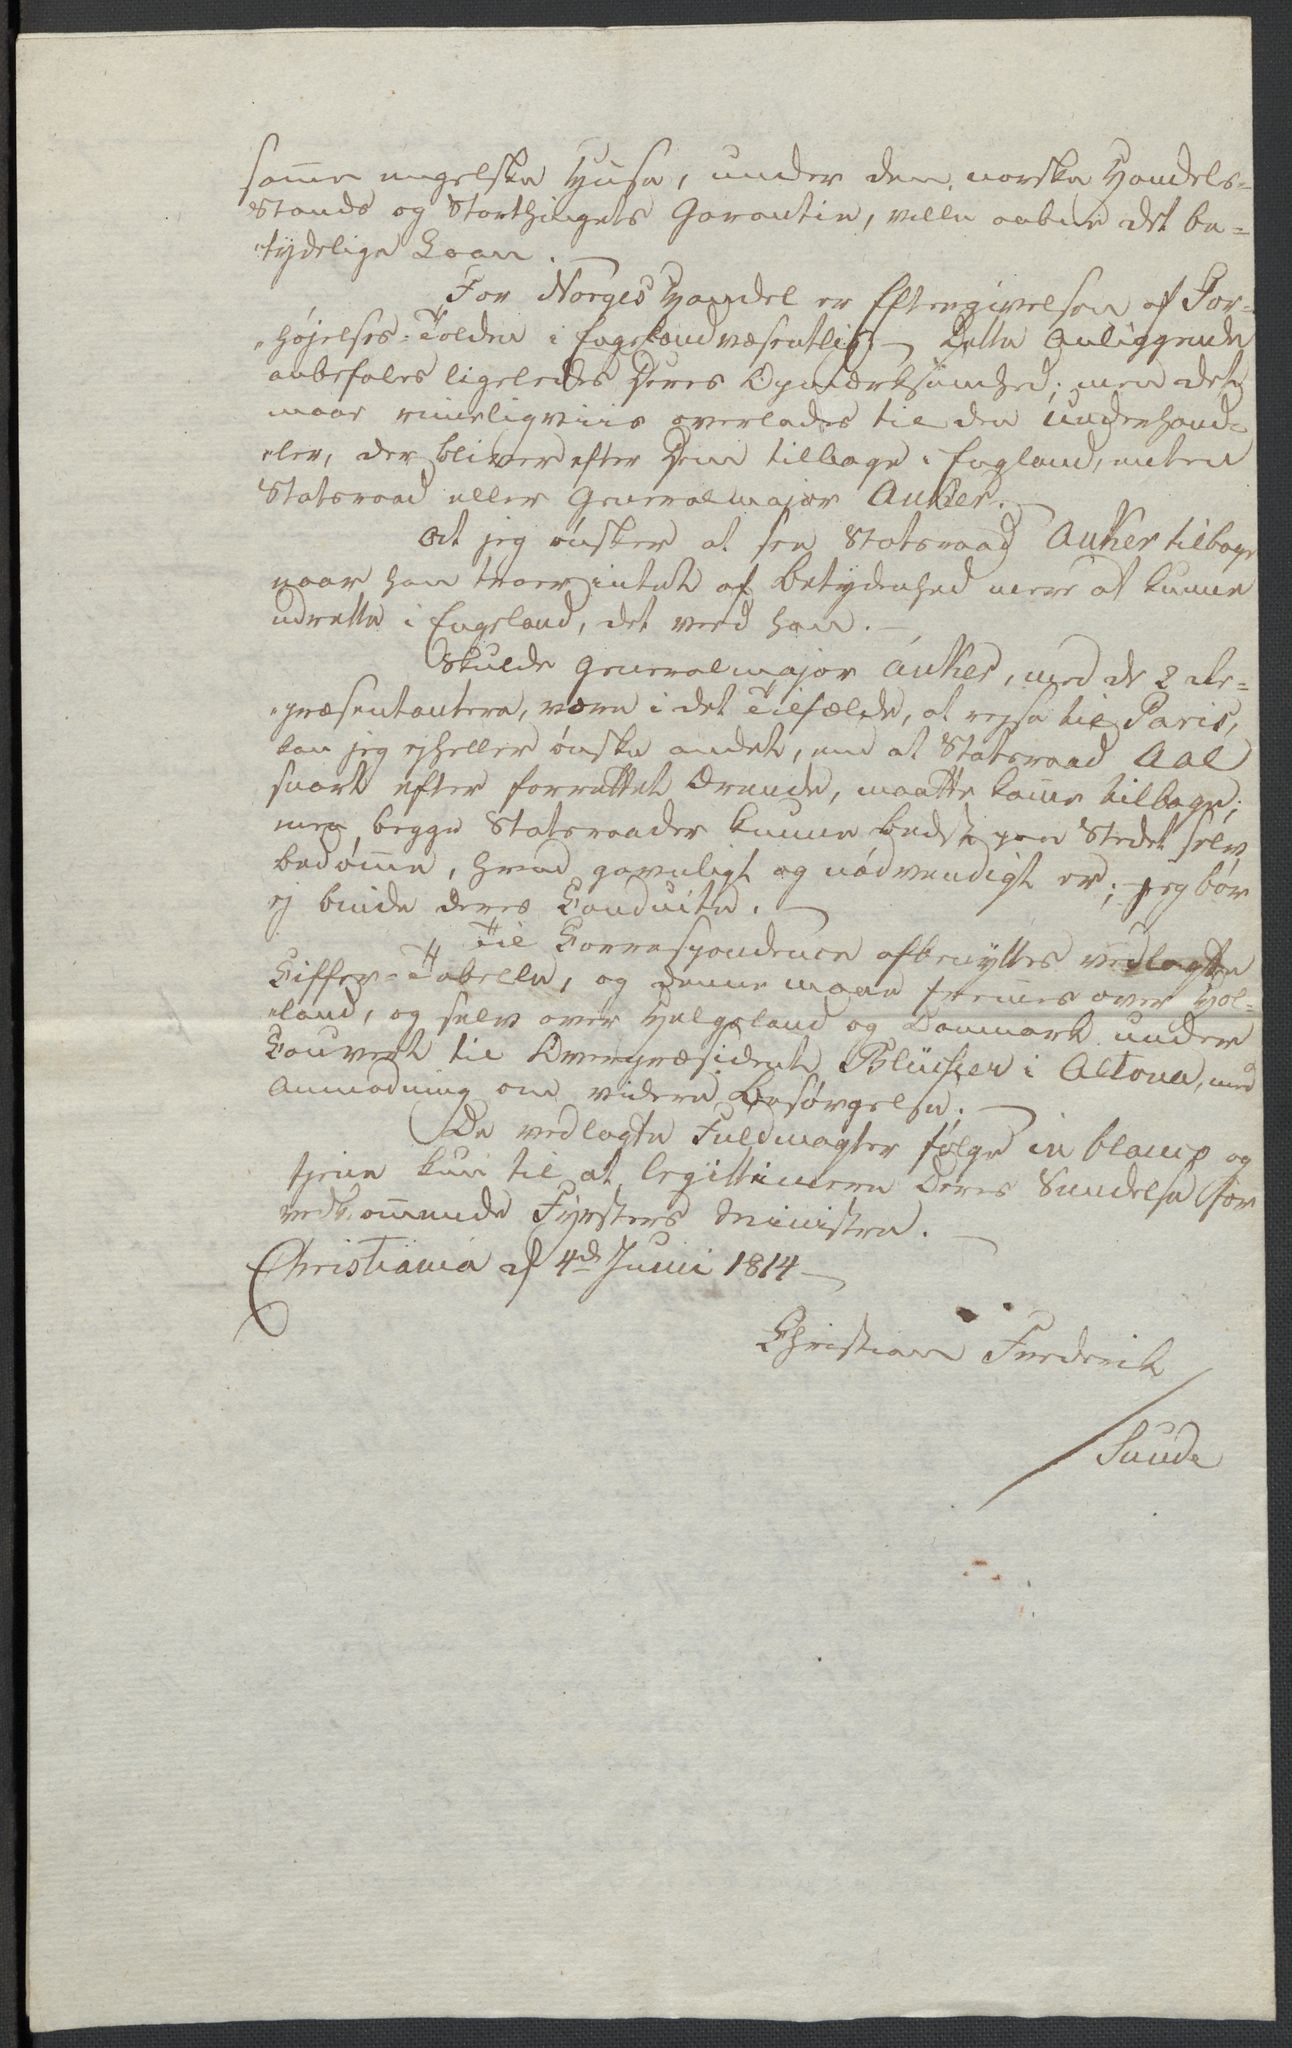 samme engelske Huse, under den norske Handels-
Stands og Storthingets Garantie, ville aabne det be-
tydelige Laan.
For Norges Handel er Eftergivelsen af For-
højelses-Tolden i Engeland væsentlig. Dette Anliggende
anbefales ligeledes Deres Opmærksomhed; men det
maae rimeligviis overlades til den Underhand-
ler, der bliver efter Dem tilbage i England, enten
Statsraad eller Generalmajor Anker.
At jeg ønsker at see Statsraad Anker tilbage
naar han troer intet af Betydenhed mere at kunne
udrette i Engeland, det veed han.
Skulde Generalmajor Anker, med de 2 Re-
præsentantere, være i det Tilfælde, at rejse til Paris,
kan jeg ejheller ønske andet, end at Statsraad Aal
snart efter forrettet Ærende, maatte komme tilbage;
men begge Statsraader kunne bedst paa Stedet selv
bedømme, hvad gavnligt og nødvendigt er; jeg bør
ej binde deres Conduite.
Til Correspondence afbenyttes vedlagte
Ciffer-Tabelle, og denne maae fremmes over Hol-
land, og selv over Helgoland og Danmark under
Couvert til Overpræsident Blücher i Altona, med
Anmodning om videre Besørgelse.
De vedlagte Fuldmagter følge in blanco og
tjene kun til at legittimere Deres Sendelse for
vedkommende Fyrsters Ministre.
Christiania d 4de Juni 1814
Christian Frederik
/ Lunde